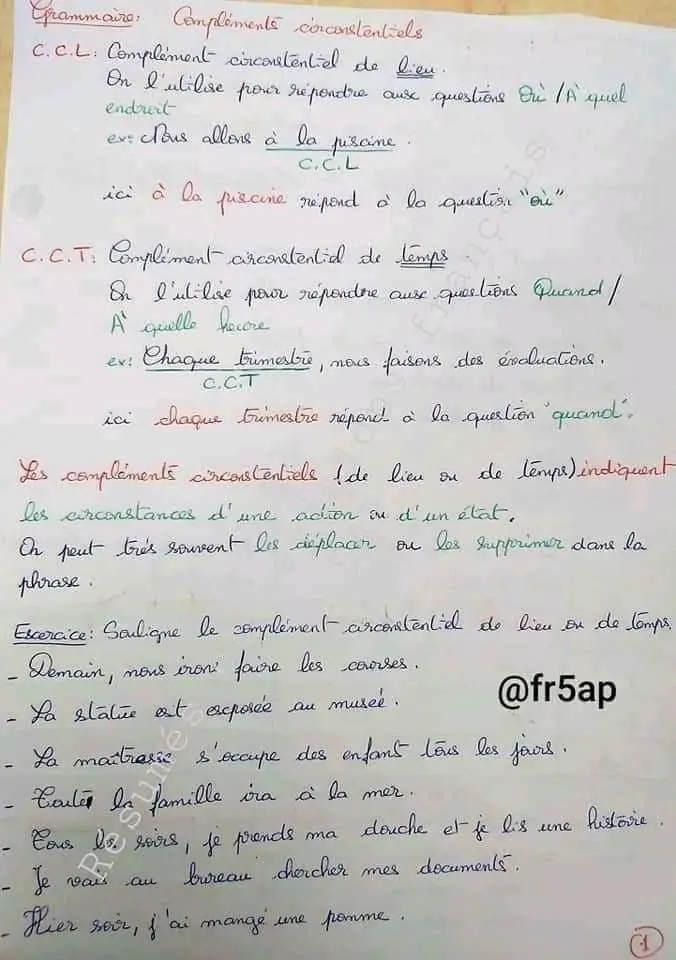 Grammaire: Compléments circonstentiels
C.C.L: Complément circonstentiel de lieu.
On l'utilise pour répondre aux questions Où / À quel
endroit
ex: Nous allons à la piscine.
C.C.L
ici à la piscine répond à la question "où"
C.C.T: Complément circonstentiel de temps
On l'utilise pour répondre aux questions Quand /
À quelle heure
ex: Chaque trimestre, nous faisons des évaluations.
C.C.T
ici chaque trimestre répond à la question "quand".
Les compléments circonstentiels (de lieu ou de temps) indiquent
les circonstances d'une action ou d'un état.
On peut très souvent les déplacer ou les supprimer dans la
phrase.
Exercice: Souligne le complément circonstentiel de lieu ou de temps.
- Demain, nous irons faire les courses.
@fr5ap
- La statue est exposée au museé.
- La maîtresse s'occupe des enfants tous les jours.
- Toute la famille ira à la mer.
- Tous les soirs, je prends ma douche et je lis une histoire.
- Je vais au bureau chercher mes documents.
- Hier soir, j'ai mangé une pomme.
1
Resumés français